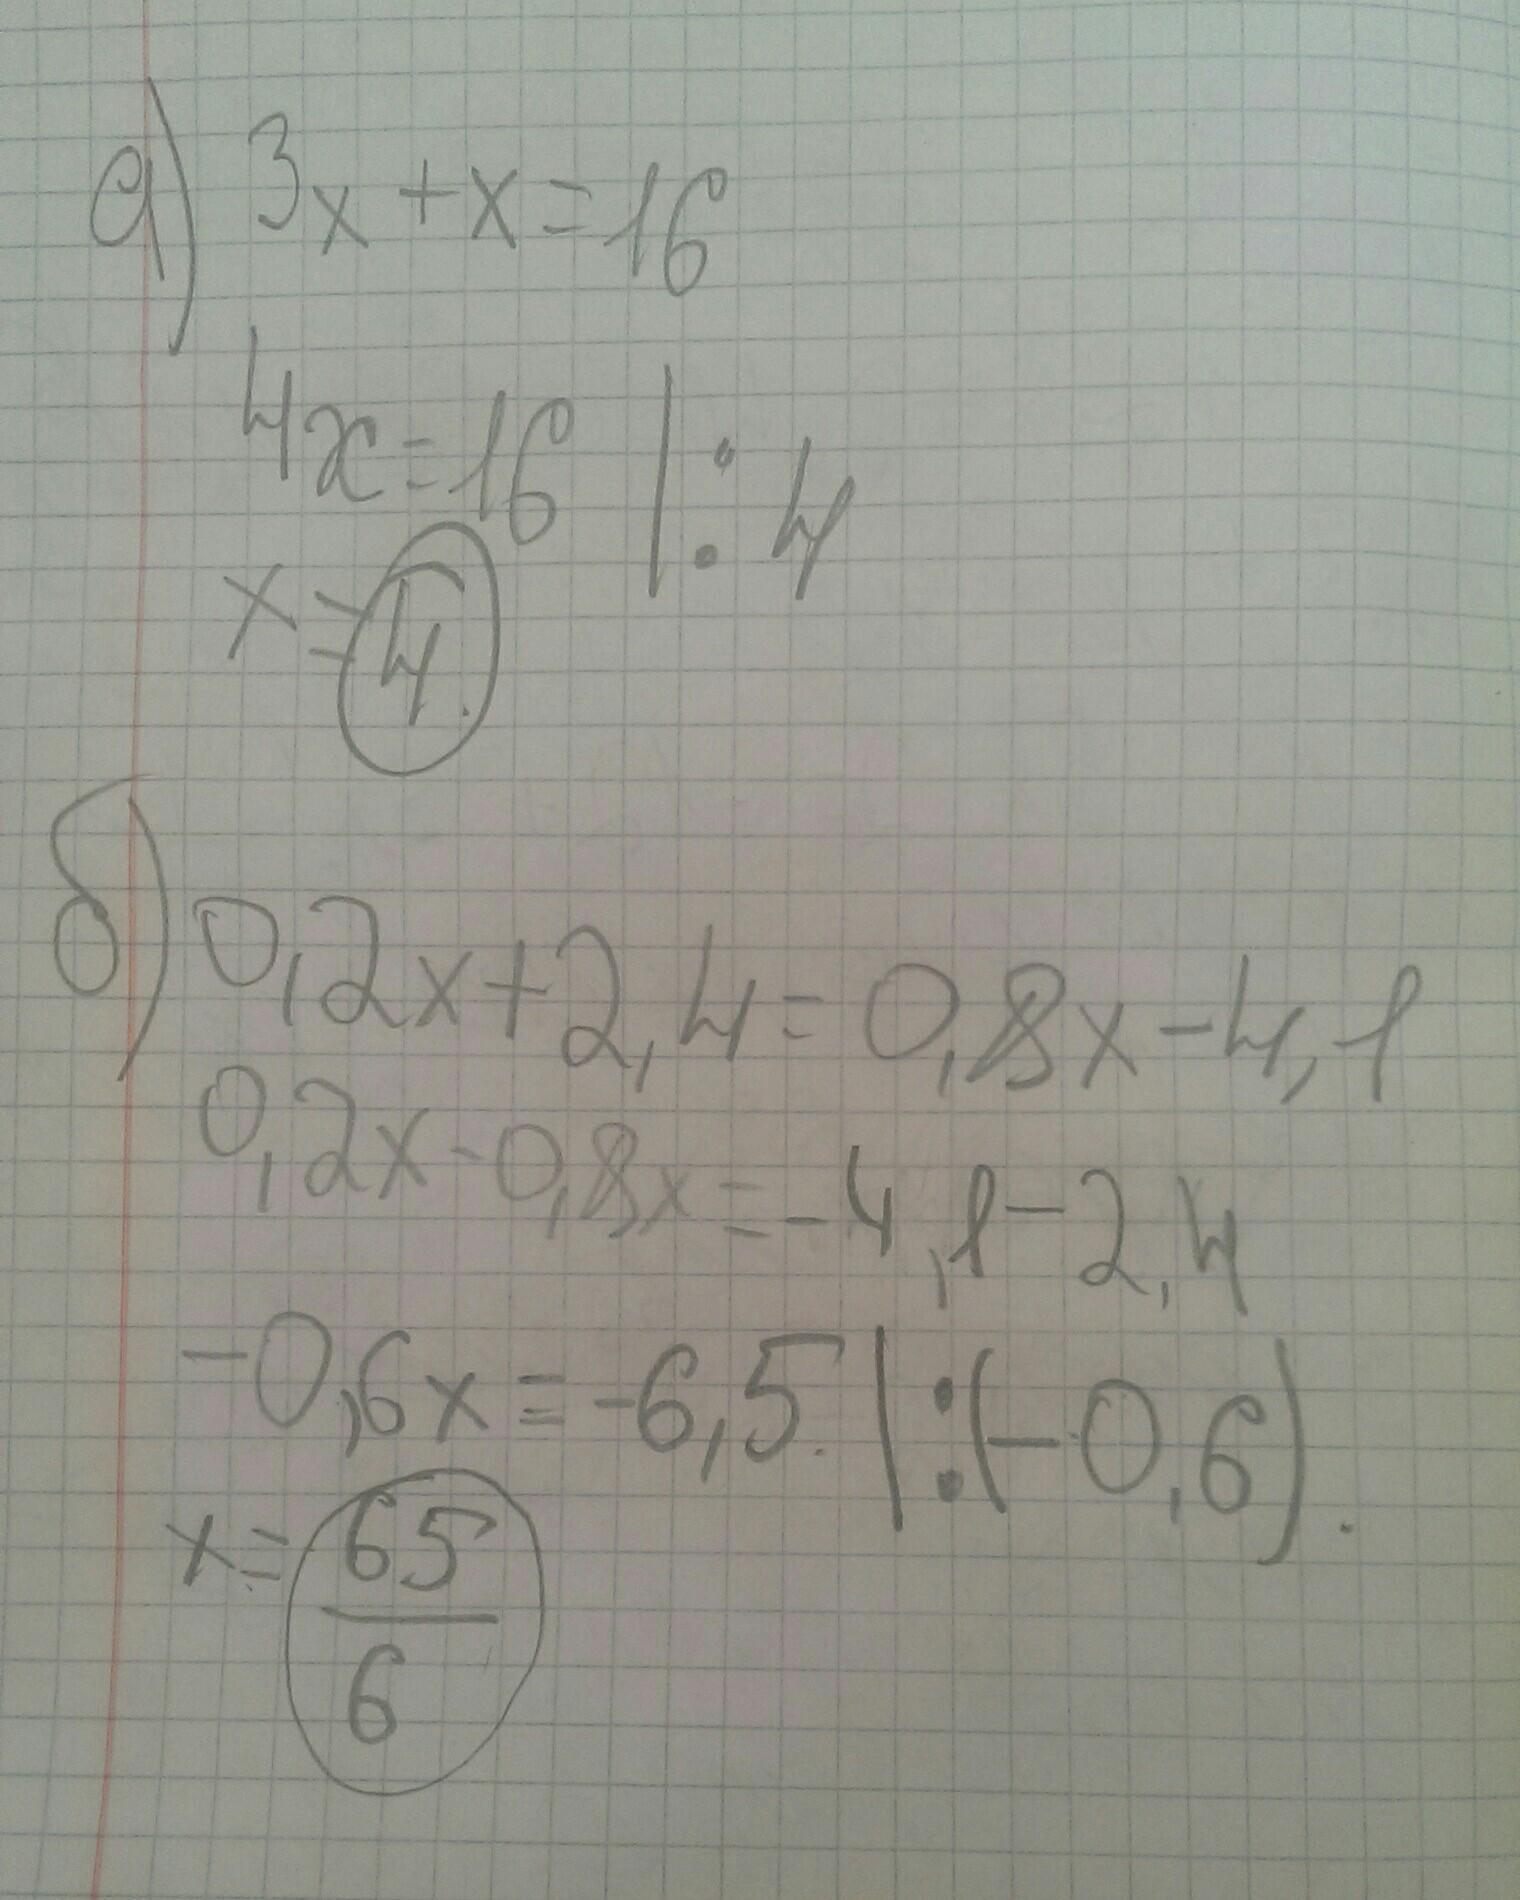 а) 3x + x = 16
4x = 16 | : 4
x = 4.
б) 0,2x + 2,4 = 0,8x - 4,1
0,2x - 0,8x = - 4,1 - 2,4
-0,6x = -6,5. | : (-0,6).
x = 65/6